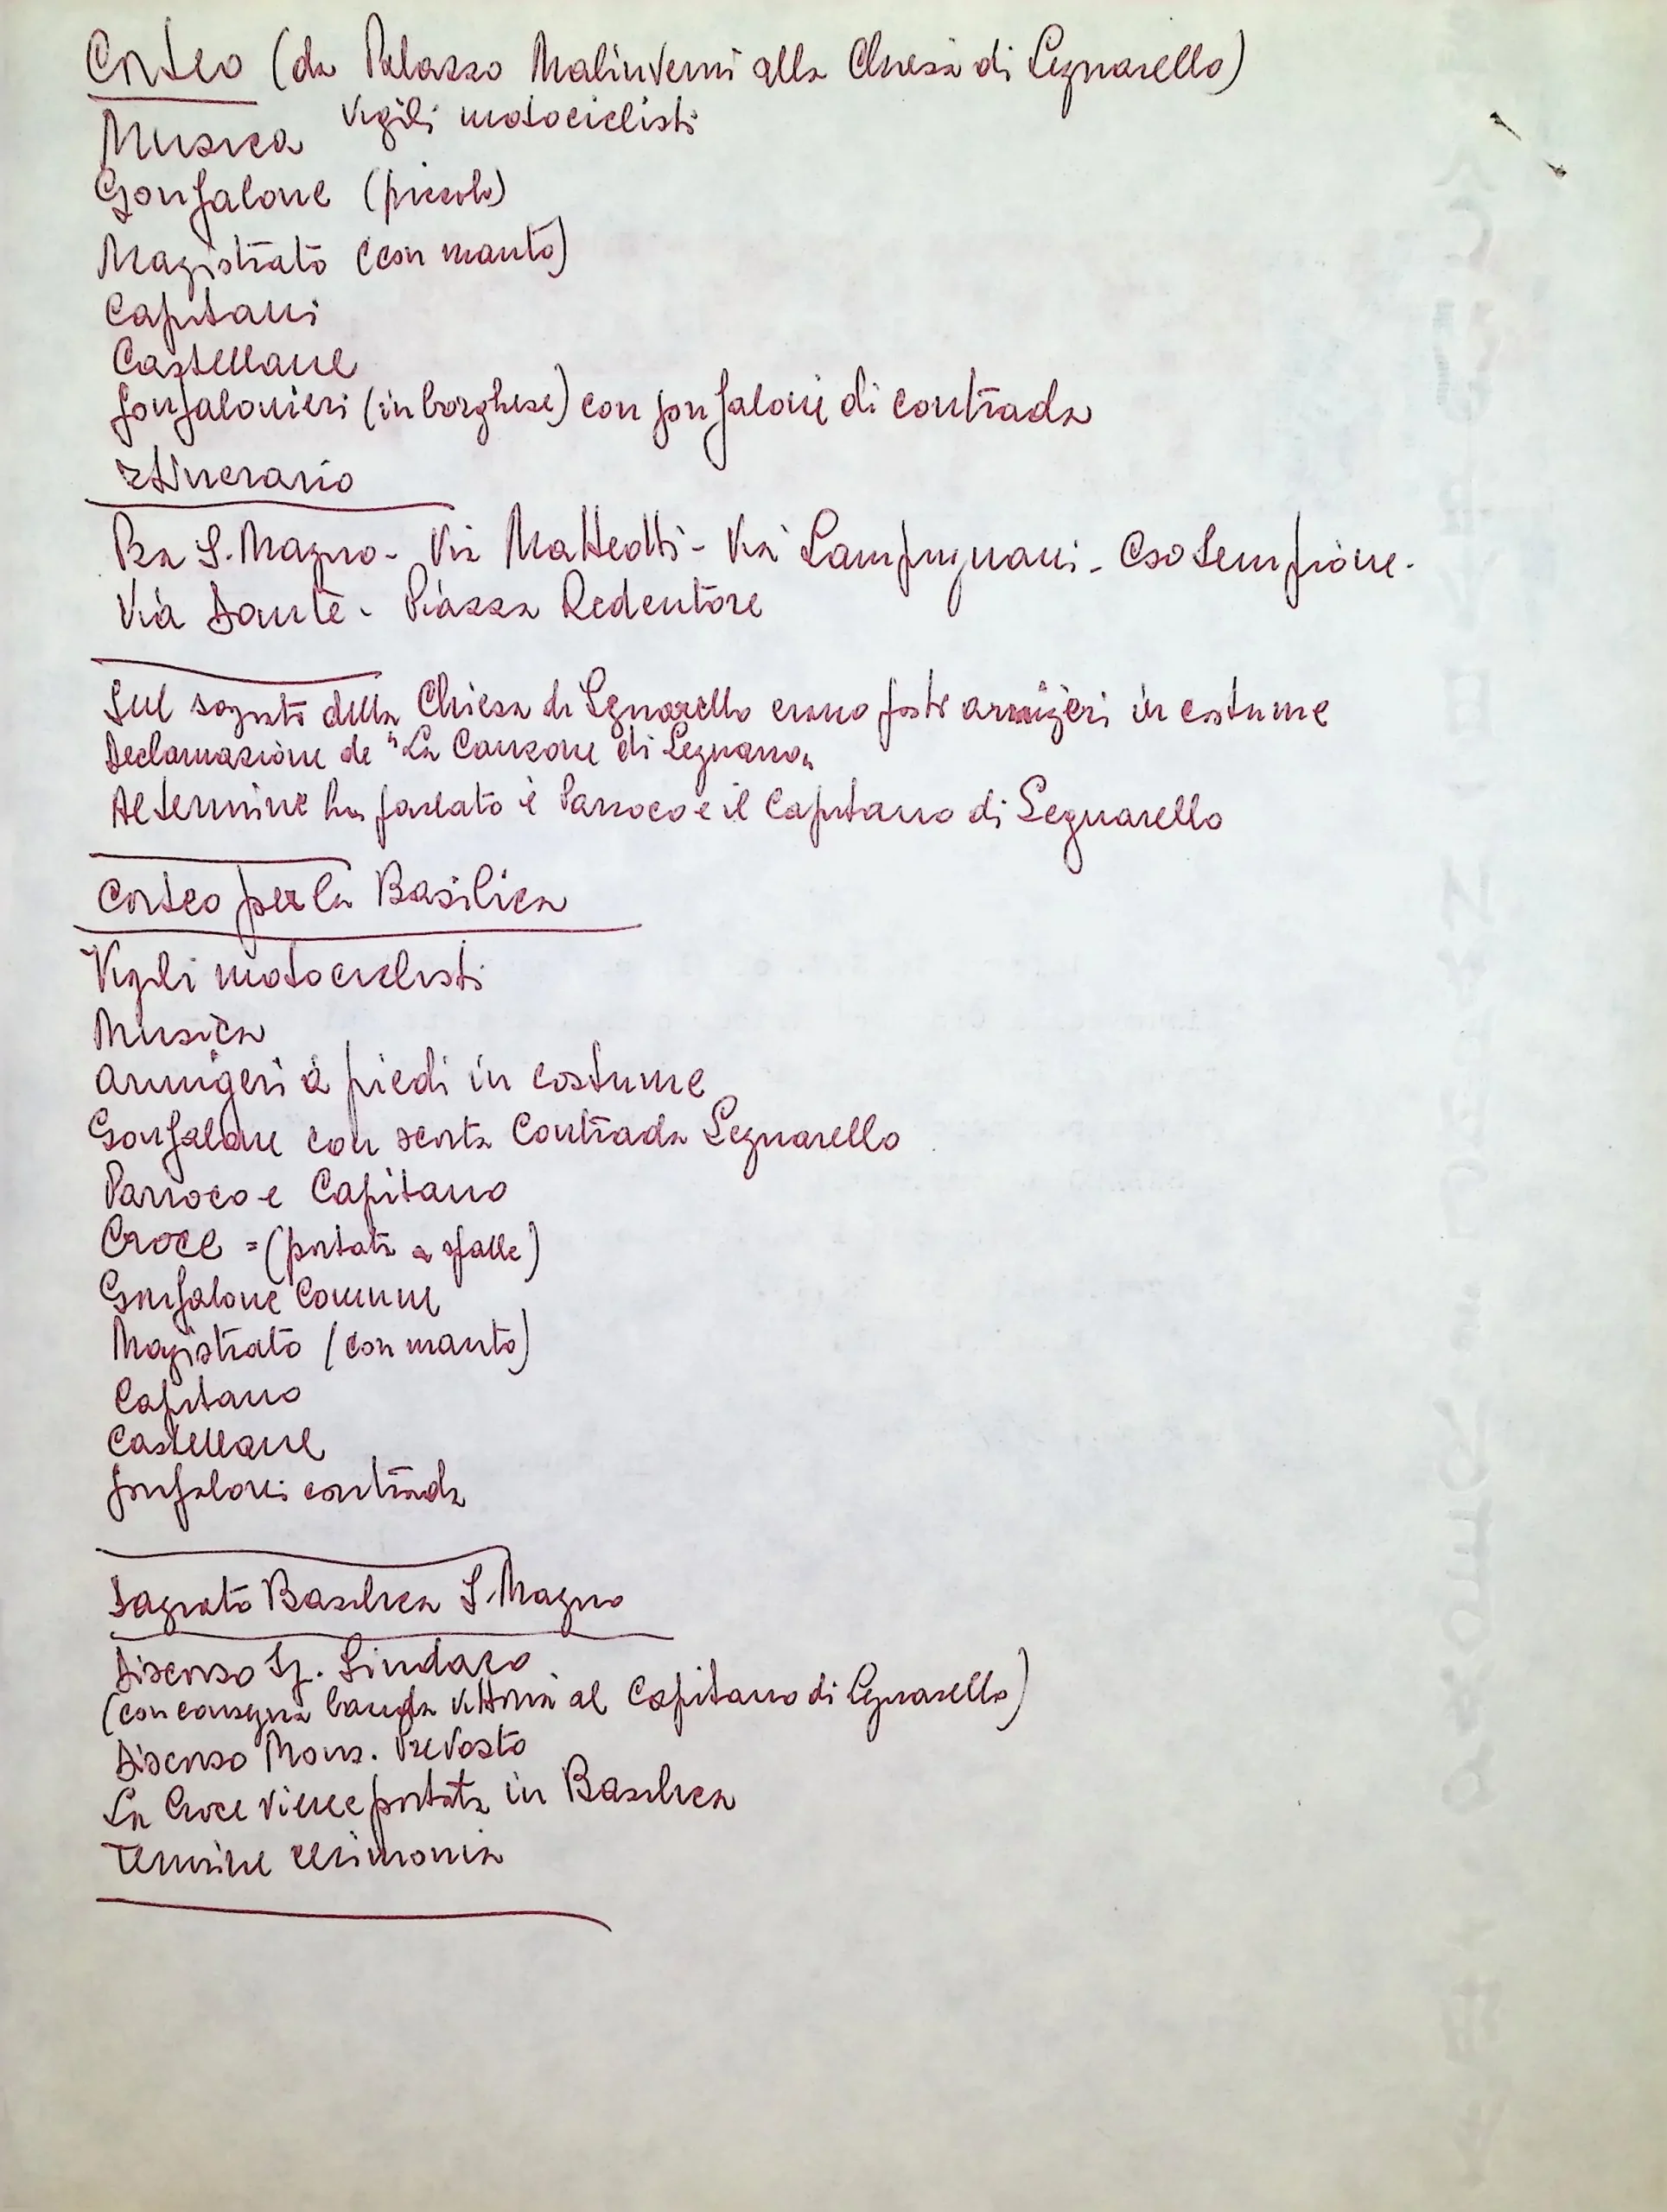 Corteo (da Palazzo Malinverni alla Chiesa di Legnarello)
Vigili motociclisti
Musica
Gonfalone (piccolo)
Magistrato (con manto)
Capitani
Castellane
Gonfalonieri (in borghese) con gonfaloni di contrada
Itinerario
Pza S. Magno - Via Matteotti - Via Lampugnani - Cso Sempione -
Via Dante - Piazza Redentore
Sul sagrato della Chiesa di Legnarello erano posti armigeri in costume
Declamazione de "La Canzone di Legnano"
Al termine ha parlato è Parroco e il Capitano di Legnarello
Corteo per la Basilica
Vigili motociclisti
Musica
Armigeri a piedi in costume
Gonfalone con scorta Contrada Legnarello
Parroco e Capitano
Croce = (portata a spalle)
Gonfalone Comune
Magistrato (con manto)
Capitano
Castellane
Gonfaloni contrada
Sagrato Basilica S. Magno
Discorso Sig. Sindaco
(con consegna banda vittoria al Capitano di Legnarello)
Discorso Mons. Prevosto
La Croce viene portata in Basilica
Termine cerimonia